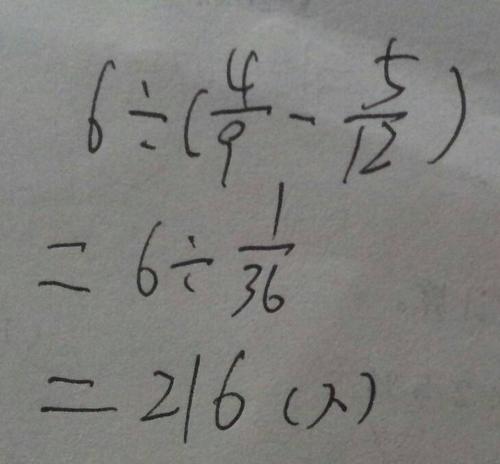 6÷(4/9-5/12)
=6÷1/36
=216(人)